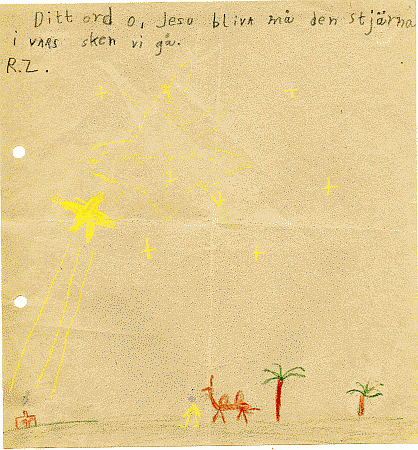 Ditt ord o, Jesu bliva må den stjärna
i vars sken vi gå.
R.Z.